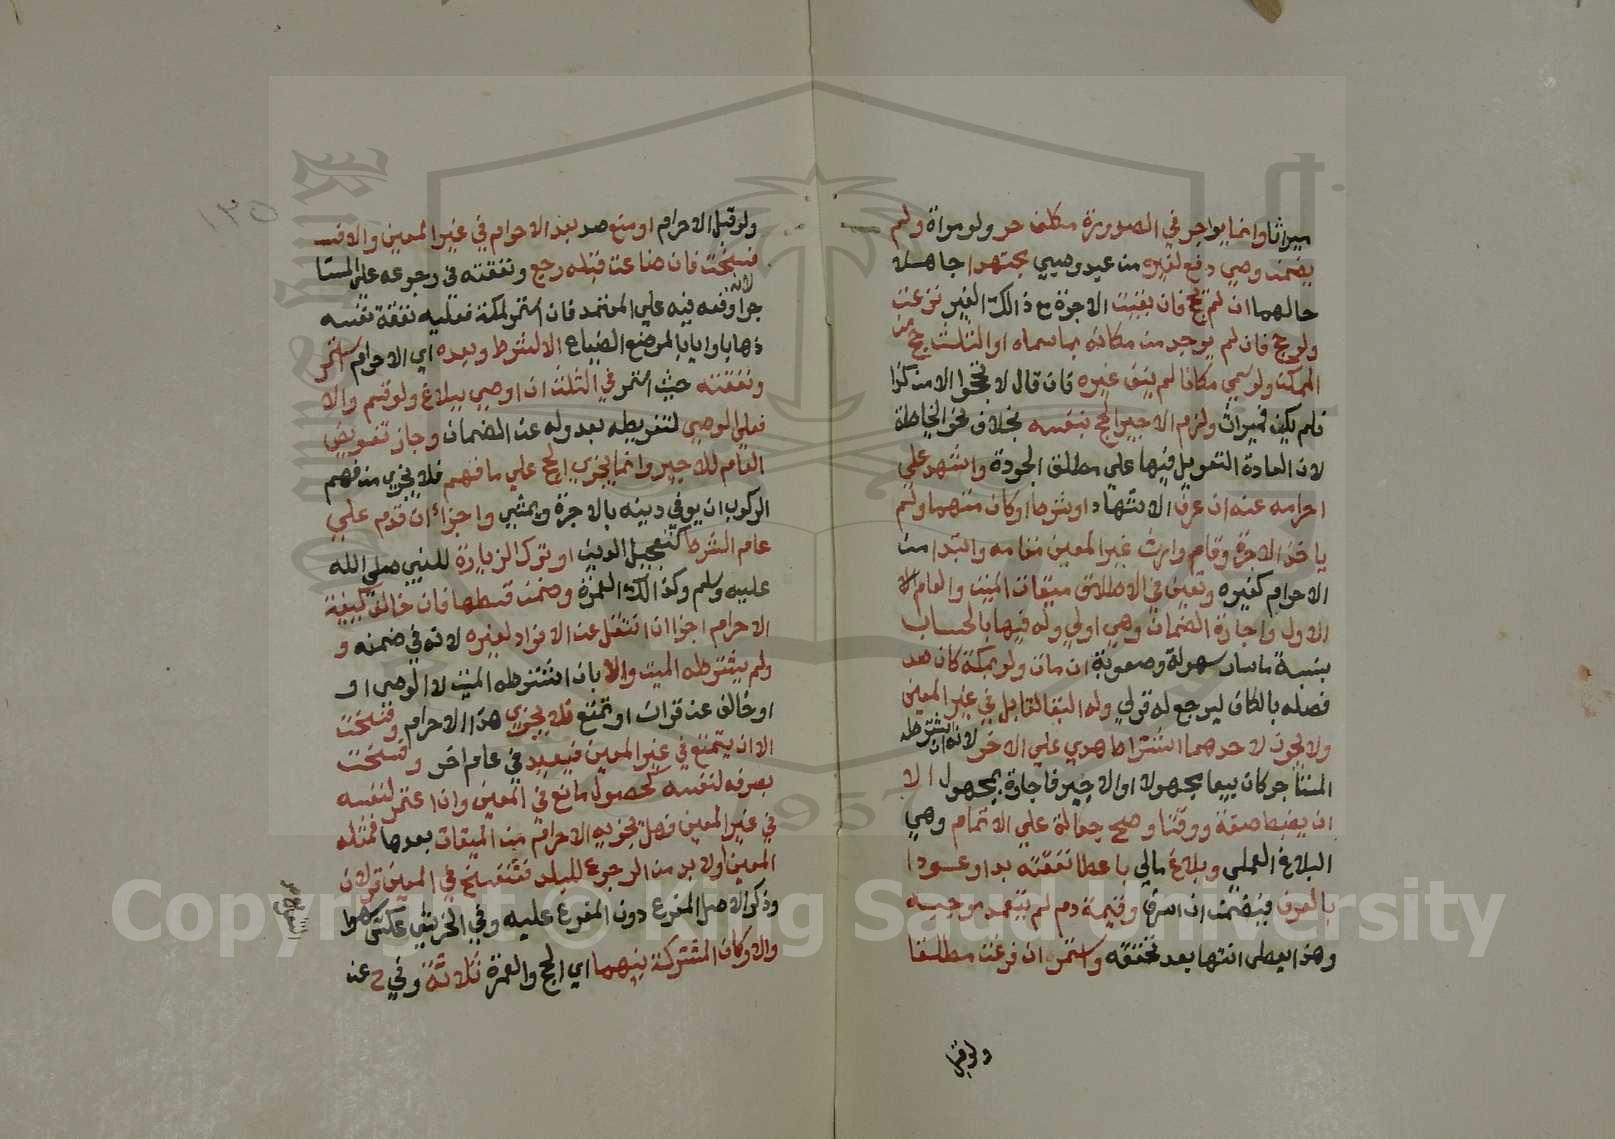 ميراثا وانما يواجر في الصرورة مكلف حر ولو مراة ولم
يضمن وصي دفع لغيره من عبد وصبي مجتهدا جاهلا
حالهما ان لم يحج فان بقيت الاجرة مع ذالك الغير نزعت
ولو حج فان لم يوجد من مكانه بما سماه او الثلث حج من
الممكن ولو سمي مكانا لم يبق غيره فان قال لا تحجوا الا من كذا
فلم يكف فميراث ولزم الاجير الحج بنفسه بخلاف نحو الخياطة
لان العادة التعويل فيها علي مطلق الجودة واشهد علي
احرامه عنه ان عرف الاشهاد او شرط او كان متهما ولم
ياخذ الاجرة وقام وارث غير المعين مقامه وابتدا من
الاحرام كغيره وتعين في الاطلاق ميقات الميت والعام الا
الاول واجارة الضمان وهي اولي وله فيها بالحساب
بنسبة ما سار سهولة وصعوبة ان مات ولو بمكة كان صد
فصله بالكاف ليرجع له قولي وله البقا لقابل في غير المعين
ولا يجوز لاحدهما اشتراط هدي علي الاخر لانه ان اشترطه
المستاجر كان بيعا مجهولا او الاجير فاجارة بمجهول الا
ان يضبط صفة ووقتا وصح جعالة علي الاتمام وهي
البلاغ العملي وبلاغ مالي باعطا نفقته بدا وعودا
بالعرف فيضمن ان اسرف وقيمة دم لم يتعمد موجبه
وهذا يعطي انتها بعد تحققه واستمر ان فرغت مطلقا
ولو قبل
١٣٥
ولو قبل الاحرام او منع صد بعد الاحرام في غير المعين والا فسـ
فسخت فان ضاعت قبله رجع ونفقته في رجوعه علي المستا
جر لانه اوقعه فيه علي المعتمد فان استمر لمكة فعليه نفقة نفسه
ذهابا وايابا لموضع الضياع الا لشرط وبعده اي الاحرام استمر
ونفقته حيث استمر في الثلث ان اوصي ببلاغ ولو قسم والا
فعلي الوصي لتفريطه بعدوله عن الضمان وجاز تفويض
العام للاجير وانما يجزي الحج علي ما فهم فلا يجزي من فهم
الركوب ان يوفي دينه بالاجرة ويمشي واجزا ان قدم علي
عام الشرط كتعجيل الدين او ترك الزيارة للنبي صلي الله
عليه وسلم وكذالك العمرة وضمن قسطها فان خالف كيفية
الاحرام اجزا ان انتقل عن الافراد لغيره لانه في ضمنه و
ولم يشترطه الميت والا بان اشترطه الميت لا الوصي او
او خالف عن قران او تمتع فلا يجزي هذا الاحرام وفسخت
الا ان يتمتع في غير المعين فيعيد في عام اخر وفسخت
بصرفه لنفسه كحصول مانع في المعين وان اعتمر لنفسه
في غير المعين فهل يجزيه الاحرام من الميقات بعدها فمثله
المعين اولا بد من الرجوع للبلد فتنفسخ في المعين قولان
وذكر الاصل المفرع دون المفرع عليه وفي الخرشي عكس سهوا
والاركان المشتركة بينهما اي الحج والعمرة ثلاثة وفي ح عن